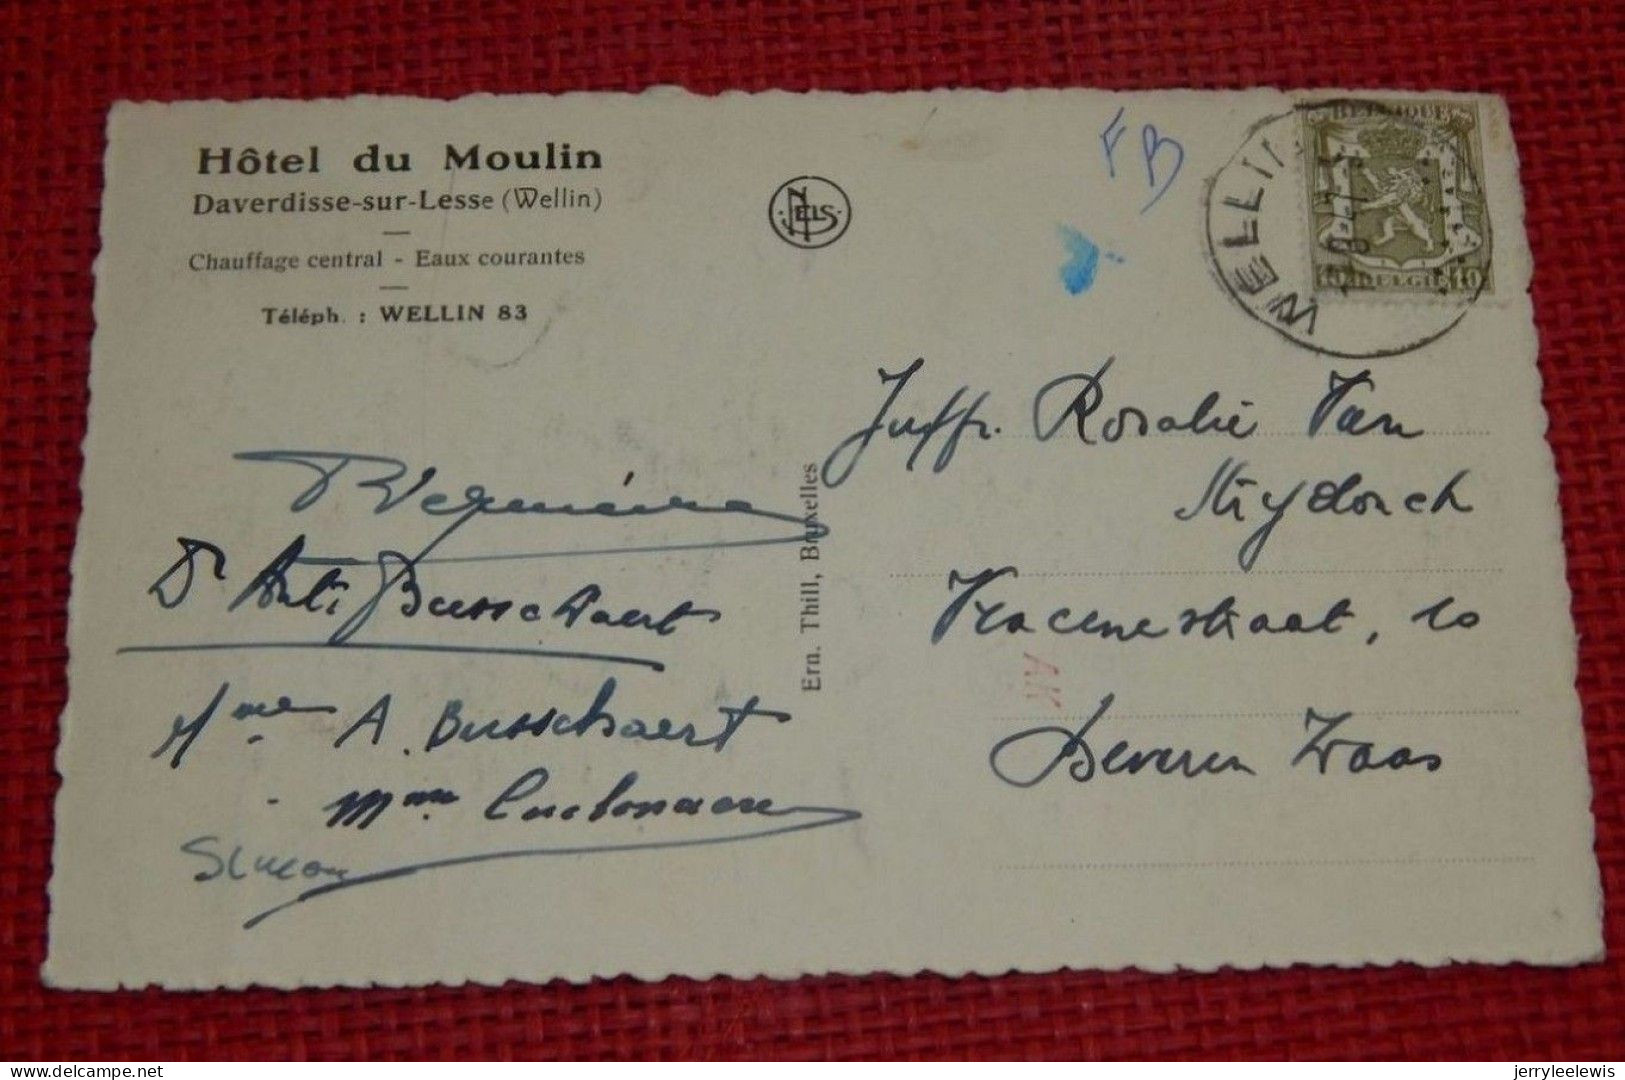 Hôtel du Moulin
Daverdisse-sur-Lesse (Wellin)
Chauffage central - Eaux courantes
Téléph. : WELLIN 83
NELS
Ern. Thill, Bruxelles
FB
WELLIN
BELGIQUE
10 BELGIE 10
Juffr. Rosalie Van
Strydonck
Kracenestraat, 10
Beveren Waas
AK
Dr Ant. Busschaert
Mme A. Busschaert
Mme
Simon
delcampe.net
jerryleelewis